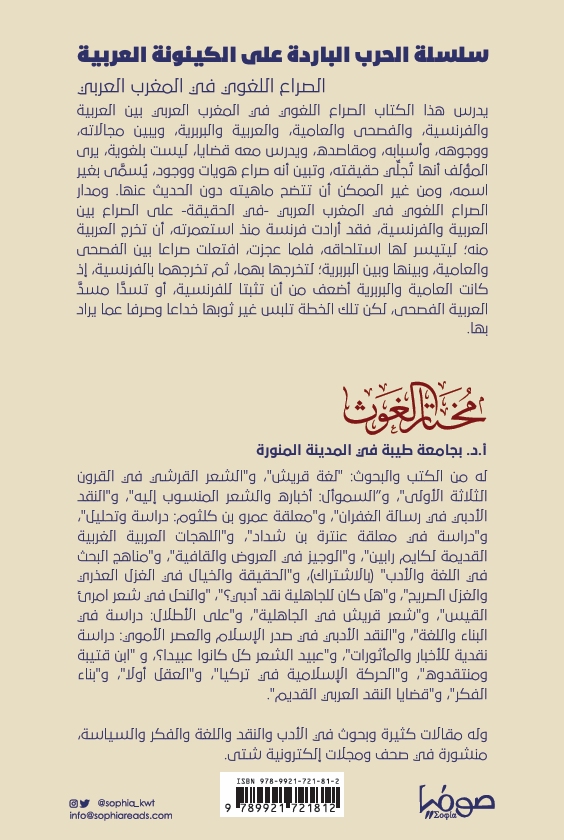 سلسلة الحرب الباردة على الكينونة العربية
الصراع اللغوي في المغرب العربي
يدرس هذا الكتاب الصراع اللغوي في المغرب العربي بين العربية
والفرنسية، والفصحى والعامية، والعربية والبربرية، ويبين مجالاته،
ووجوهه، وأسبابه، ومقاصده، ويدرس معه قضايا، ليست بلغوية، يرى
المؤلف أنها تُجلّي حقيقته، وتبين أنه صراع هويات ووجود، يُسمَّى بغير
اسمه، ومن غير الممكن أن تتضح ماهيته دون الحديث عنها. ومدار
الصراع اللغوي في المغرب العربي -في الحقيقة- على الصراع بين
العربية والفرنسية، فقد أرادت فرنسة منذ استعمرته، أن تخرج العربية
منه؛ ليتيسر لها استلحاقه، فلما عجزت، افتعلت صراعا بين الفصحى
والعامية، وبينها وبين البربرية؛ لتخرجها بهما، ثم تخرجهما بالفرنسية، إذ
كانت العامية والبربرية أضعف من أن تثبتا للفرنسية، أو تسدَّا مسدَّ
العربية الفصحى، لكن تلك الخطة تلبس غير ثوبها خداعا وصرفا عما يراد
بها.
مختار الغوث
أ.د. بجامعة طيبة في المدينة المنورة
له من الكتب والبحوث: "لغة قريش"، و"الشعر القرشي في القرون
الثلاثة الأولى"، و"السموأل: أخباره والشعر المنسوب إليه"، و"النقد
الأدبي في رسالة الغفران"، و"معلقة عمرو بن كلثوم: دراسة وتحليل"،
و"دراسة في معلقة عنترة بن شداد"، و"اللهجات العربية الغربية
القديمة لكايم رابين"، و"الوجيز في العروض والقافية"، و"مناهج البحث
في اللغة والأدب" (بالاشتراك)، و"الحقيقة والخيال في الغزل العذري
والغزل الصريح"، و"هل كان للجاهلية نقد أدبي؟"، "والنحل في شعر امرئ
القيس"، و"شعر قريش في الجاهلية"، و"على الأطلال: دراسة في
البناء واللغة"، و"النقد الأدبي في صدر الإسلام والعصر الأموي: دراسة
نقدية للأخبار والمأثورات"، و"عبيد الشعر كل كانوا عبيدا؟، و "ابن قتيبة
ومنتقدوه"، و"الحركة الإسلامية في تركيا"، و"العقل أولًا"، و"بناء
الفكر"، و"قضايا النقد العربي القديم".
وله مقالات كثيرة وبحوث في الأدب والنقد واللغة والفكر والسياسة،
منشورة في صحف ومجلات إلكترونية شتى.
ISBN 978-9921-721-81-2
9 789921 721812
@sophia_kwt
info@sophiareads.com
صوفيا
Σοφία